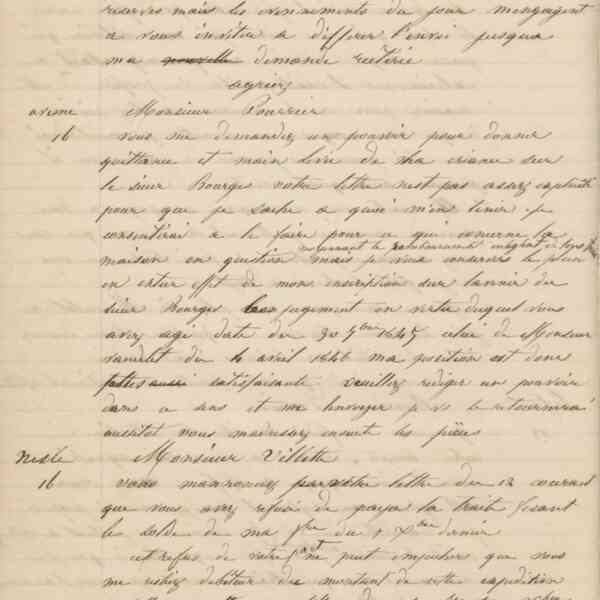 reserves mais les evennements du jour mengagent
a vous inviter a differer l'envoi jusqua
ma nouvelle demande reiterée
agréez
avesne Monsieur Pourrier
16 vous me demandez un pouvoir pour donner
quittance et main levée de ma créance sur
le sieur Bourges votre lettre n'est pas assez explicite
pour que je sache a quoi m'en tenir. je
consentirai a le faire pour ce qui concerne la
moyennant le remboursement integral de
maison en question mais je veux conserver le plein
en entier effet de mon inscription sur l'avoir du
sieur Bourges jugement en vertu duquel vous
avez agi date du 30 7bre 1845 celui de Monsieur
du 4 avril 1846 ma position est donc
satisfaisante veuillez rediger un pouvoir
dans ce sens et me l'envoyer je vs le retournerai
aussitot vous m'adressez ensuite les pièces
Nesle Monsieur Villette
16 vous m'annoncez par votre lettre du 12 courant
que vous avez refusé de payer la traite fesant
le solde de ma fre du 1 Xbre dernier
cet refus de votre part ne peut empecher que vous
me restiez debiteur du montant de cette expedition